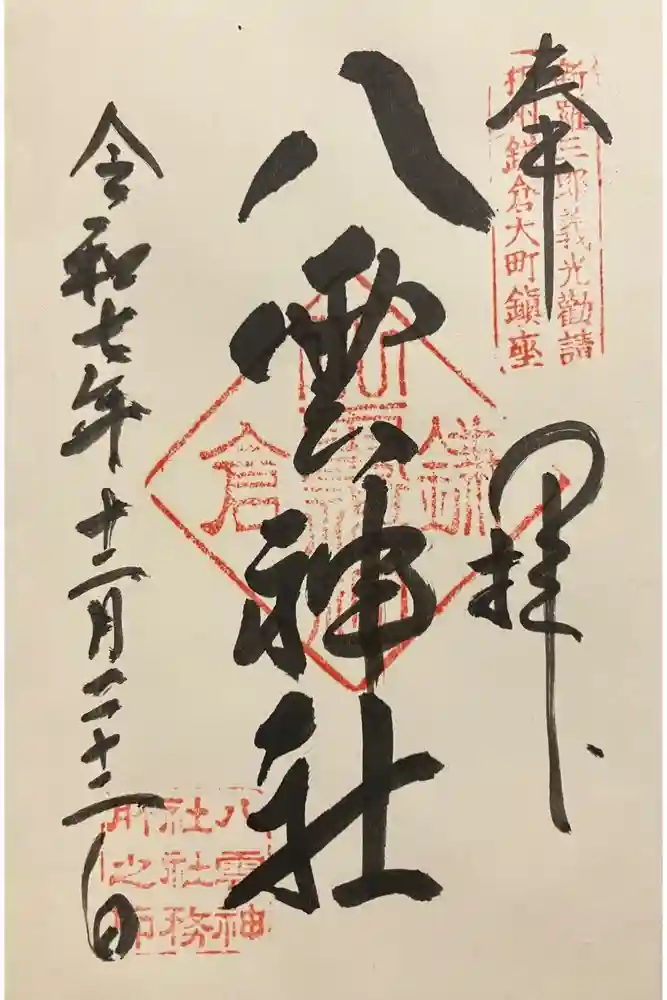 奉拝
新羅三郎義光勸請
相州鎌倉大町鎮座
八雲神社
鎌倉
八雲神
社社務
所之印
令和七年十二月二十二日